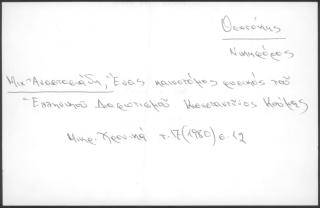 Θεοτόκης
Νικηφόρος
Μιχ. Αναστασιάδη, Ένας καινοτόμος φυσικός του
Ελληνικού Διαφωτισμού Κωνσταντίνος Κούμας
Μικρ. Χρονικά τ. 17 (1980) σ. 12